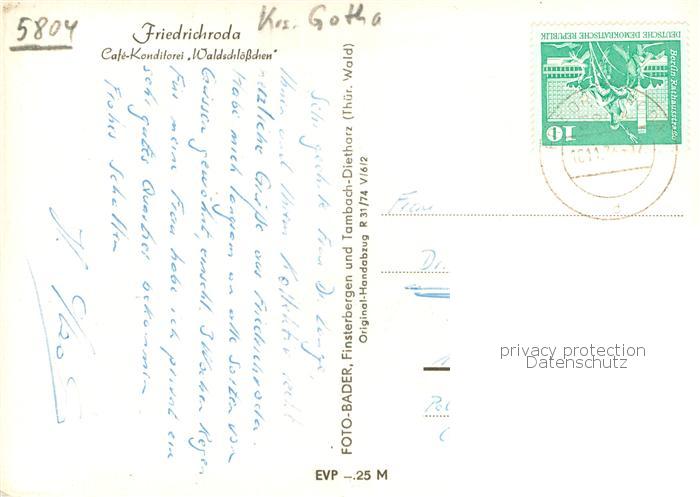 5804
Krs. Gotha
Friedrichroda
Café-Konditorei „Waldschlößchen"
Sehr geehrte Frau Dr. Lange,
Ihnen und Ihrem
herzliche Grüße aus Friedrichroda.
Habe mich langsam an alle Sorten von
gewöhnt, einschl. 3 Wochen Regen
Für meine Frau habe ich privat ein
sehr gutes Quartier bekommen.
Frohes Schaffen
FOTO-BADER, Finsterbergen und Tambach-Dietharz (Thür. Wald)
Original-Handabzug R 31/74 V/6/2
EVP –.25 M
DEUTSCHE DEMOKRATISCHE REPUBLIK
Berlin, Rathausstraße
10
Frau
Dr.
privacy protection
Datenschutz